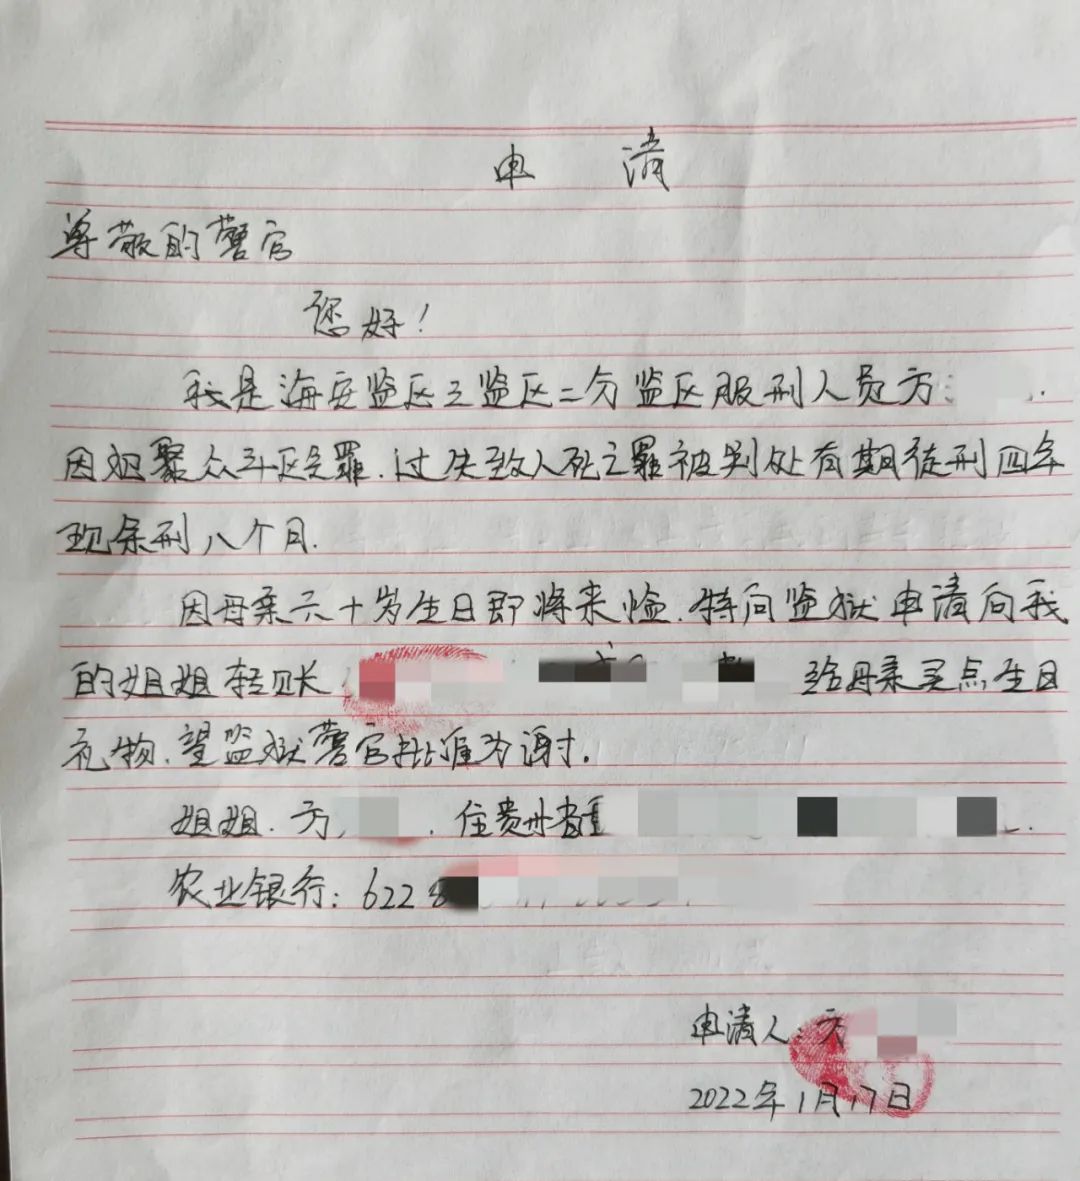 申 请
尊敬的警官
您好!
我是海安监区三监区二分监区服刑人员方
因犯聚众斗殴罪.过失致人死亡罪被判处有期徒刑四年
现余刑八个月.
因母亲六十岁生日即将来临.特向监狱申请向我
的姐姐转账 给母亲买点生日
礼物.望监狱警官批准为谢.
姐姐.方 . 住贵州省
农业银行: 622
申请人:方
2022年1月17日